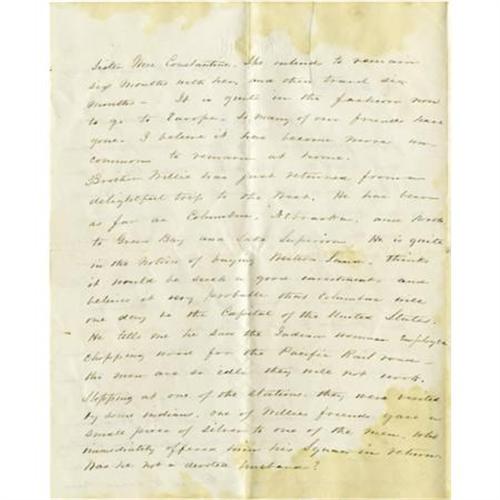 Sister Mrs Constantine. She intend to remain
six months with her, and then travel six
months – It is quite in the fashion now
to go to Europe. So many of our friends have
gone. I believe it has become more un-
common to remain at home.
Brother Willie has just returned from a
delightful trip to the West. He has been
as far as Columbus, Nebraska, and North
to Green Bay and Lake Superior. He is quite
in the notion of buying Western Land, thinks
it would be such a good investment, and
believes it very probable that Columbus will
one day be the Capital of the United States.
He tells me he saw the Indian women employed
chopping wood for the Pacific Rail road –
the men are so idle they will not work.
Stopping at one of the stations, they were visited
by some indians, one of Willies friends gave a
small piece of silver to one of the men, who
immediately offered him his Squaw in return.
Was he not a devoted husband?